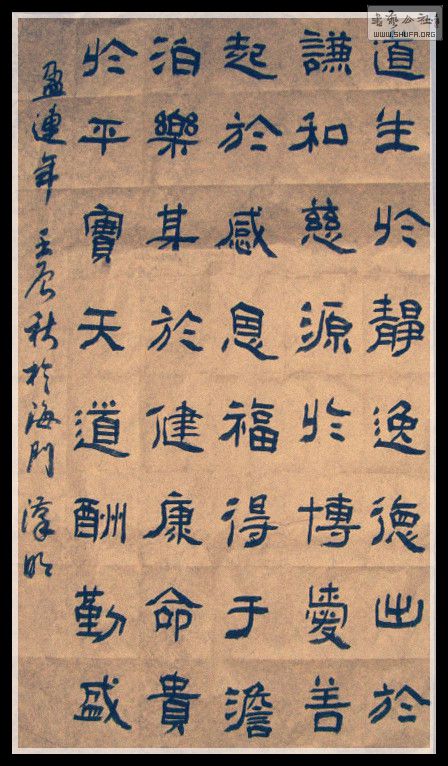 道生於靜逸德出於
謙和慈源於博愛善
起於感恩福得于澹
泊樂基於健康命貴
於平實天道酬勤盛
盈連年 壬辰秋於海門 漢明
書藝公社
WWW.SHUFA.ORG